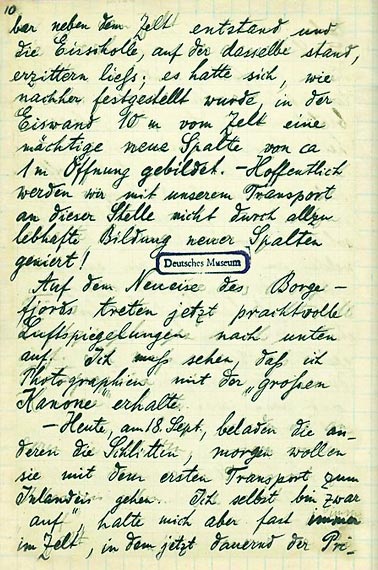 10
bar neben dem Zelt entstand und
die Eisscholle, auf der dasselbe stand,
erzittern liess; es hatte sich, wie
nachher festgestellt wurde, in der
Eiswand 10 m vom Zelt eine
mächtige neue Spalte von ca
1 m Öffnung gebildet. – Hoffentlich
werden wir mit unserem Transport
an dieser Stelle nicht durch allzu
lebhafte Bildung neuer Spalten
geniert!
Deutsches Museum
Auf dem Neueise des Borge-
fjords treten jetzt prachtvolle
Luftspiegelungen nach unten
auf. Ich muß sehen, daß ich
Photographien mit der "großen
Kanone" erhalte.
– Heute, am 18. Sept., beladen die an-
deren die Schlitten, morgen wollen
sie mit dem ersten Transport zum
Inlandeis gehen. Ich selbst bin zwar
"auf", halte mich aber fast immer
im Zelt, in dem jetzt dauernd der Pri-